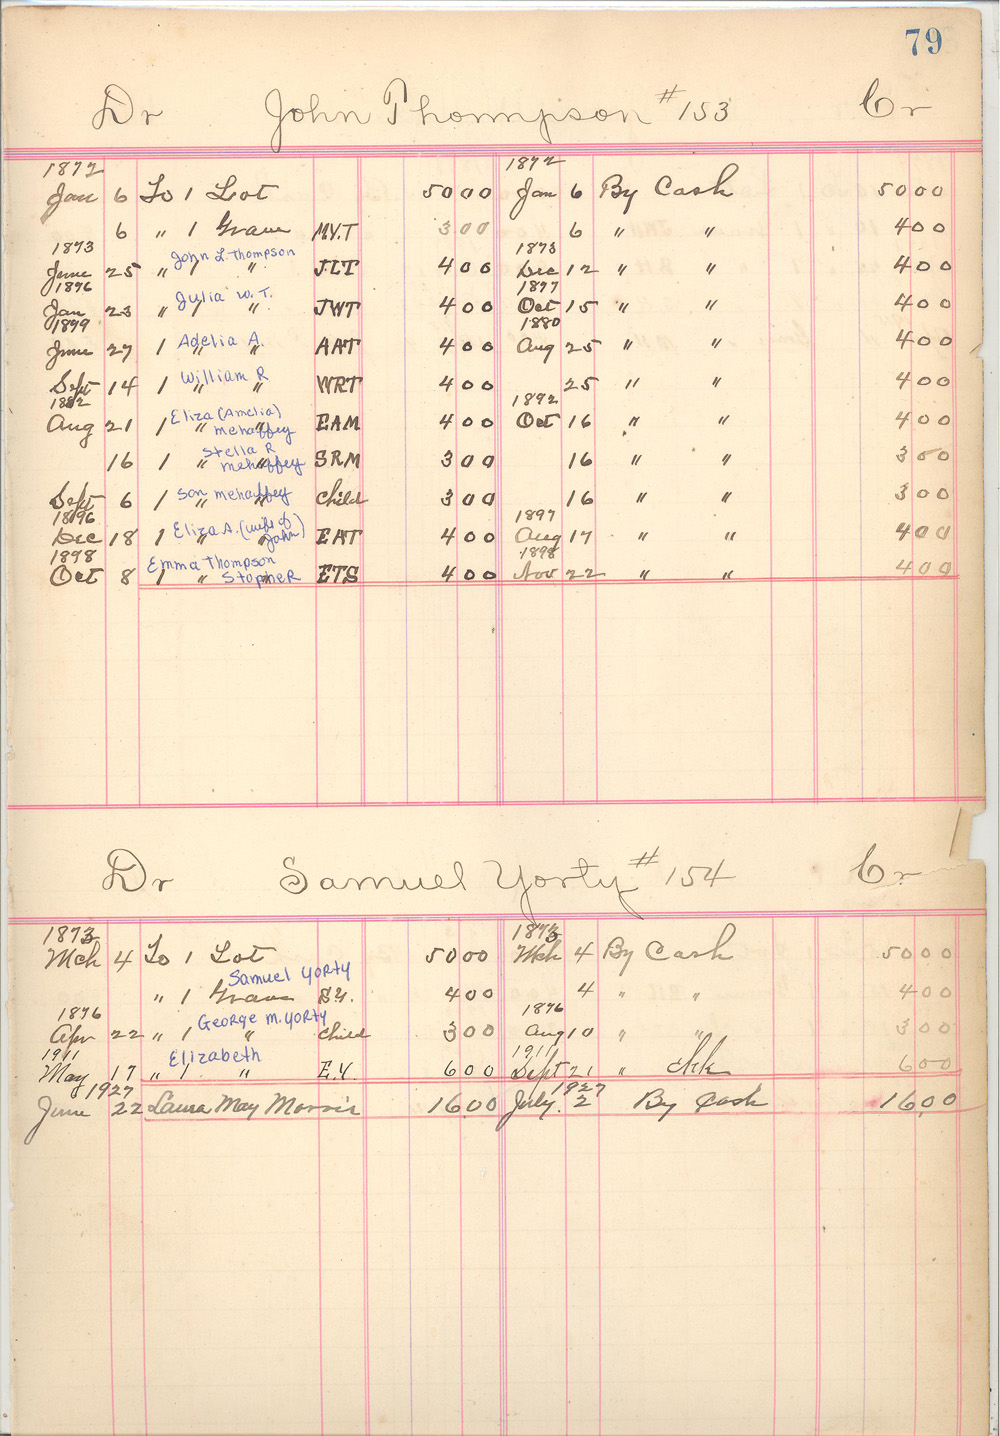 79
Dr John Thompson #153 Cr
1872 1872
Jan 6 To 1 Lot 50 00 Jan 6 By Cash 50 00
6 " 1 Grave MY.T 3 00 6 " " 4 00
1873 John L. Thompson 1873
June 25 " 1 " JLT 4 00 Dec 12 " " 4 00
1876 Julia W. T. 1877
Jan 23 " 1 " JWT 4 00 Oct 15 " " 4 00
1879 Adelia A. 1880
June 27 1 " " AAT 4 00 Aug 25 " " 4 00
William R
Sept 14 1 " " WRT 4 00 25 " " 4 00
1882 Eliza (Amelia) 1892
Aug 21 1 " mehaffey " EAM 4 00 Oct 16 " " 4 00
Stella R
16 1 " mehaffey " SRM 3 00 16 " " 3 00
Sept 6 1 son mehaffey " " Child 3 00 16 " " 3 00
1896 Eliza A. (wife of 1897
Dec 18 1 " John) " EAT 4 00 Aug 17 " " 4 00
1898 Emma Thompson 1898
Oct 8 1 " Stopher " ETS 4 00 Nov 22 " " 4 00
Dr Samuel Yorty #154 Cr
1873 1873
Mch 4 To 1 Lot 50 00 Mch 4 By Cash 50 00
Samuel Yorty
" 1 Grave S.Y. 4 00 4 " " 4 00
1876 George M. Yorty 1876
Apr 22 " 1 " Child 3 00 Aug 10 " " 3 00
1911 Elizabeth 1911
May 17 " 1 " E.Y. 6 00 Sept 21 " Chk 6 00
1927 1927
June 22 Laura May Morris 16.00 July 2 By Cash 16.00